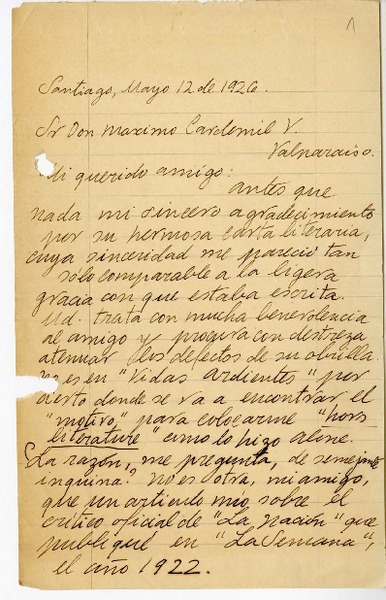 1
Santiago, Mayo 12 de 1926.
Sr Don Maximo Cardemil V.
Valparaiso.
Mi querido amigo:
antes que
nada mi sincero agradecimiento
por su hermosa carta literaria,
cuya sinceridad me pareció tan
sólo comparable a la ligera
gracia con que estaba escrita.
Ud. trata con mucha benevolencia
al amigo y procura con destreza
atenuar los defectos de su obrilla.
No es en "Vidas ardientes" por
cierto donde se va a encontrar el
"motivo" para colocarme "hors
literature" como lo hizo Alone.
La razón, me pregunta, de semejante
inquina? no es otra, mi amigo,
que un artículo mio sobre el
critico oficial de "La Nación" que
publiqué en "La Semana",
el año 1922.